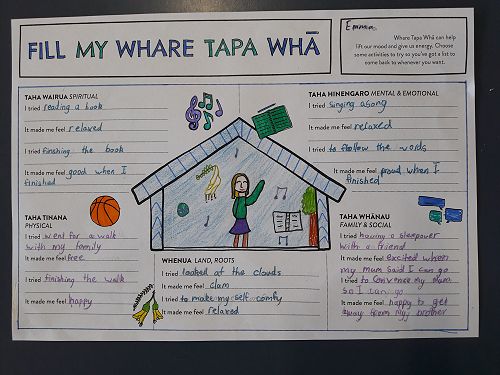 FILL MY WHARE TAPA WHĀ
Emma
Where Tapa Whā can help
lift our mood and give us energy. Choose
some activities to try so you've got a list to
come back to whenever you want.
TAHA WAIRUA SPIRITUAL
I tried reading a book
It made me feel relaxed
I tried finishing the book
It made me feel good when I
finished
TAHA HINENGARO MENTAL & EMOTIONAL
I tried singing a song
It made me feel relaxed
I tried to follow the words
It made me feel proud when I
finished
TAHA TINANA
PHYSICAL
I tried went for a walk
with my family
It made me feel free
I tried finishing the walk
It made me feel happy
WHENUA LAND, ROOTS
I tried looked at the clouds
It made me feel clam
I tried to make my self comfy
It made me feel relaxed
TAHA WHĀNAU
FAMILY & SOCIAL
I tried having a sleepover
with a friend
It made me feel excited when
my mum said I can go
I tried to convence my mum
so I can go
It made me feel happy to get
away from my brother